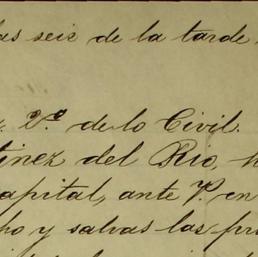 las seis de la tarde.
V.º de lo Civil.
tinez del Rio,
capital, ante V. en
ho y salvas las pr